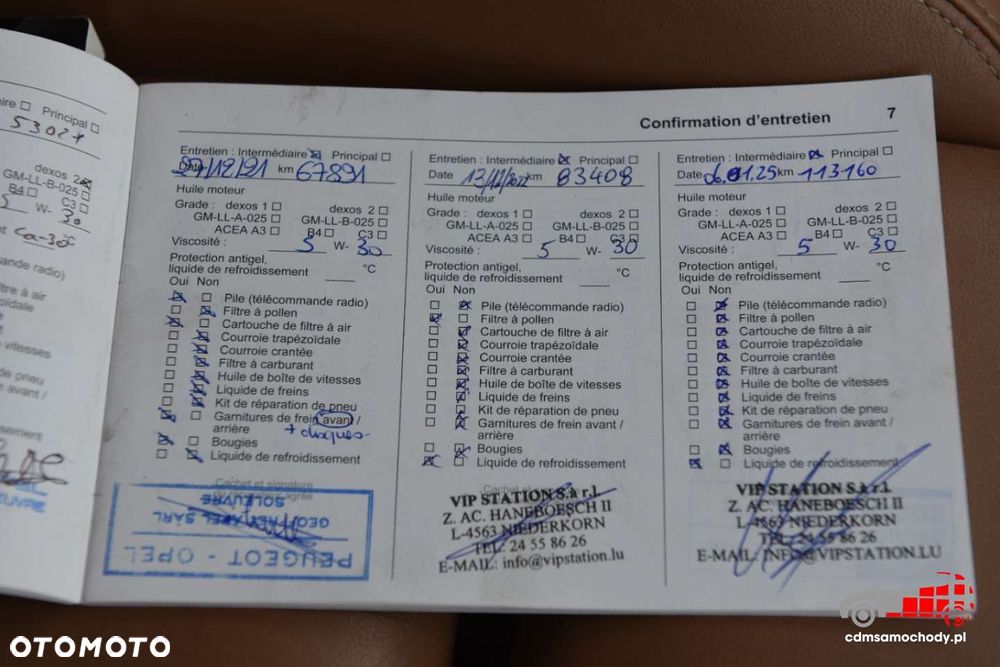 Principal
53027
dexos 2
GM-LL-B-025
B4 C3
W- 30
Confirmation d'entretien 7
Entretien : Intermédiaire Principal
Date 27/12/21 km 67891
Huile moteur
Grade : dexos 1 dexos 2
GM-LL-A-025 GM-LL-B-025
ACEA A3 B4 C3
Viscosité : 5 W- 30
Protection antigel,
liquide de refroidissement °C
Oui Non
Pile (télécommande radio)
Filtre à pollen
Cartouche de filtre à air
Courroie trapézoïdale
Courroie crantée
Filtre à carburant
Huile de boîte de vitesses
Liquide de freins
Kit de réparation de pneu
Garnitures de frein avant /
arrière + disques
Bougies
Liquide de refroidissement
Cachet et signature
PEUGEOT - OPEL
GEOFFREY ABEL SARL
SOLEUVRE
Entretien : Intermédiaire Principal
Date 13/12/2022 km 83408
Huile moteur
Grade : dexos 1 dexos 2
GM-LL-A-025 GM-LL-B-025
ACEA A3 B4 C3
Viscosité : 5 W- 30
Protection antigel,
liquide de refroidissement °C
Oui Non
Pile (télécommande radio)
Filtre à pollen
Cartouche de filtre à air
Courroie trapézoïdale
Courroie crantée
Filtre à carburant
Huile de boîte de vitesses
Liquide de freins
Kit de réparation de pneu
Garnitures de frein avant /
arrière
Bougies
Liquide de refroidissement
VIP STATION S.à r.l.
Z. AC. HANEBOESCH II
L-4563 NIEDERKORN
TEL: 24 55 86 26
E-MAIL: info@vipstation.lu
Entretien : Intermédiaire Principal
Date 06.01.25 km 113160
Huile moteur
Grade : dexos 1 dexos 2
GM-LL-A-025 GM-LL-B-025
ACEA A3 B4 C3
Viscosité : 5 W- 30
Protection antigel,
liquide de refroidissement °C
Oui Non
Pile (télécommande radio)
Filtre à pollen
Cartouche de filtre à air
Courroie trapézoïdale
Courroie crantée
Filtre à carburant
Huile de boîte de vitesses
Liquide de freins
Kit de réparation de pneu
Garnitures de frein avant /
arrière
Bougies
Liquide de refroidissement
VIP STATION S.à r.l.
Z. AC. HANEBOESCH II
L-4563 NIEDERKORN
TEL: 24 55 86 26
E-MAIL: INFO@VIPSTATION.LU
OTOMOTO
cdmsamochody.pl